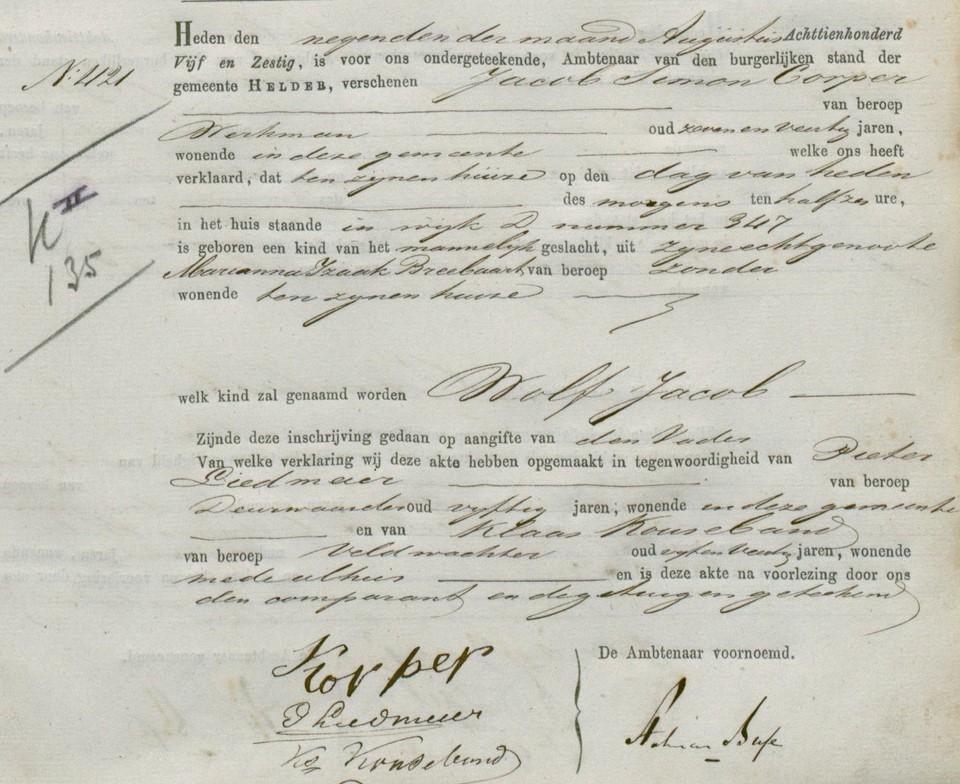 Heden den negenden der maand Augustus Achttienhonderd
Vijf en Zestig, is voor ons ondergeteekende, Ambtenaar van den burgerlijken stand der
No: 421
gemeente HELDER, verschenen Jacob Simon Corper
van beroep
Werkman oud zeven en veertig jaren,
wonende in deze gemeente welke ons heeft
verklaard, dat ten zynen huize op den dag van heden
des morgens ten half zes ure,
in het huis staande in wijk 2 nummer 347
is geboren een kind van het mannelijk geslacht, uit zyne echtgenoote
Marianna Izaak Breebaart van beroep zonder
wonende ten zynen huize
II
135
welk kind zal genaamd worden Wolf Jacob
Zijnde deze inschrijving gedaan op aangifte van den Vader
Van welke verklaring wij deze akte hebben opgemaakt in tegenwoordigheid van Pieter
Liedmeier van beroep
Deurwaarder oud vyftig jaren; wonende in deze gemeente
en van Klaas Kouseband
van beroep Veldwachter oud jaren, wonende
mede alhier en is deze akte na voorlezing door ons
den comparant en de getuigen geteekend
Korper
De Ambtenaar voornoemd.
P Liedmeier
Ks Kouseband